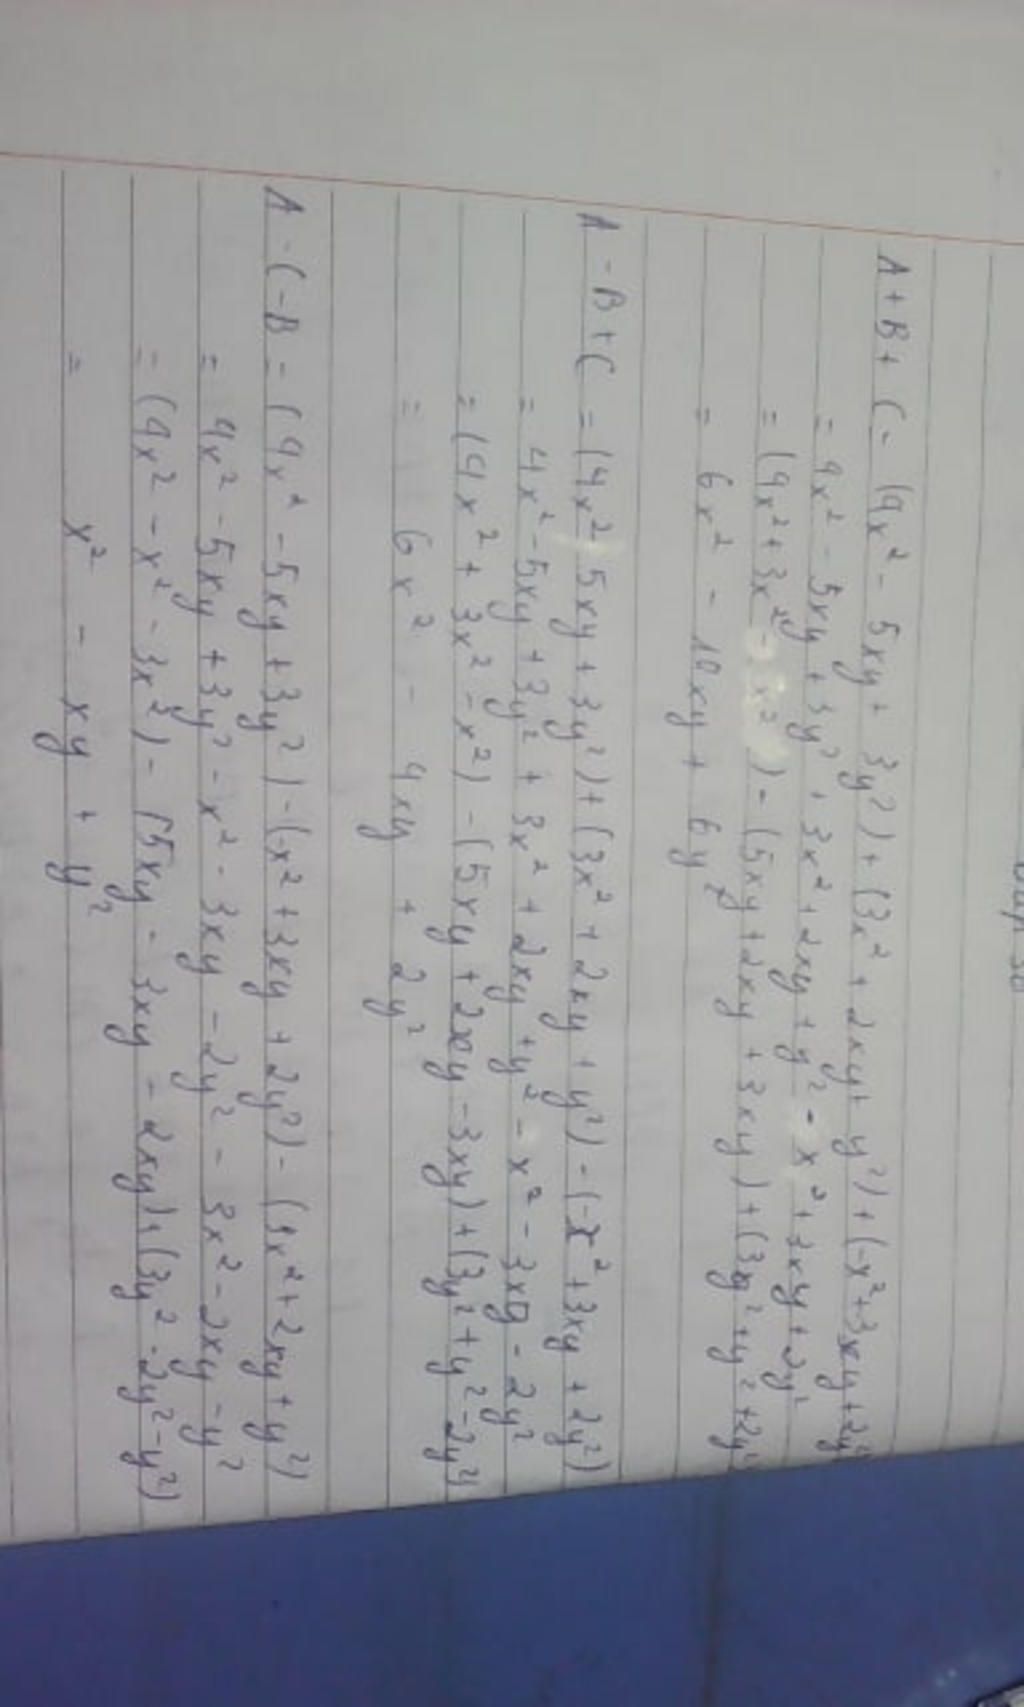 A + B + C = (4x² - 5xy + 3y²) + (3x² + 2xy + y²) + (-x² + 3xy + 2y²
= 4x² - 5xy + 3y² + 3x² + 2xy + y² - x² + 3xy + 2y²
= (4x² + 3x² - x²) - (5xy + 2xy + 3xy) + (3y² + y² + 2y²
= 6x² - 10xy + 6y²
A - B + C = (4x² - 5xy + 3y²) + (3x² + 2xy + y²) - (-x² + 3xy + 2y²)
= 4x² - 5xy + 3y² + 3x² + 2xy + y² - x² - 3xy - 2y²
= (4x² + 3x² - x²) - (5xy + 2xy - 3xy) + (3y² + y² - 2y²)
= 6x² - 4xy + 2y²
A - C - B = (4x² - 5xy + 3y²) - (-x² + 3xy + 2y²) - (3x² + 2xy + y²)
= 4x² - 5xy + 3y² - x² - 3xy - 2y² - 3x² - 2xy - y²
= (4x² - x² - 3x²) - (5xy - 3xy - 2xy) + (3y² - 2y² - y²)
= x² - xy + y²